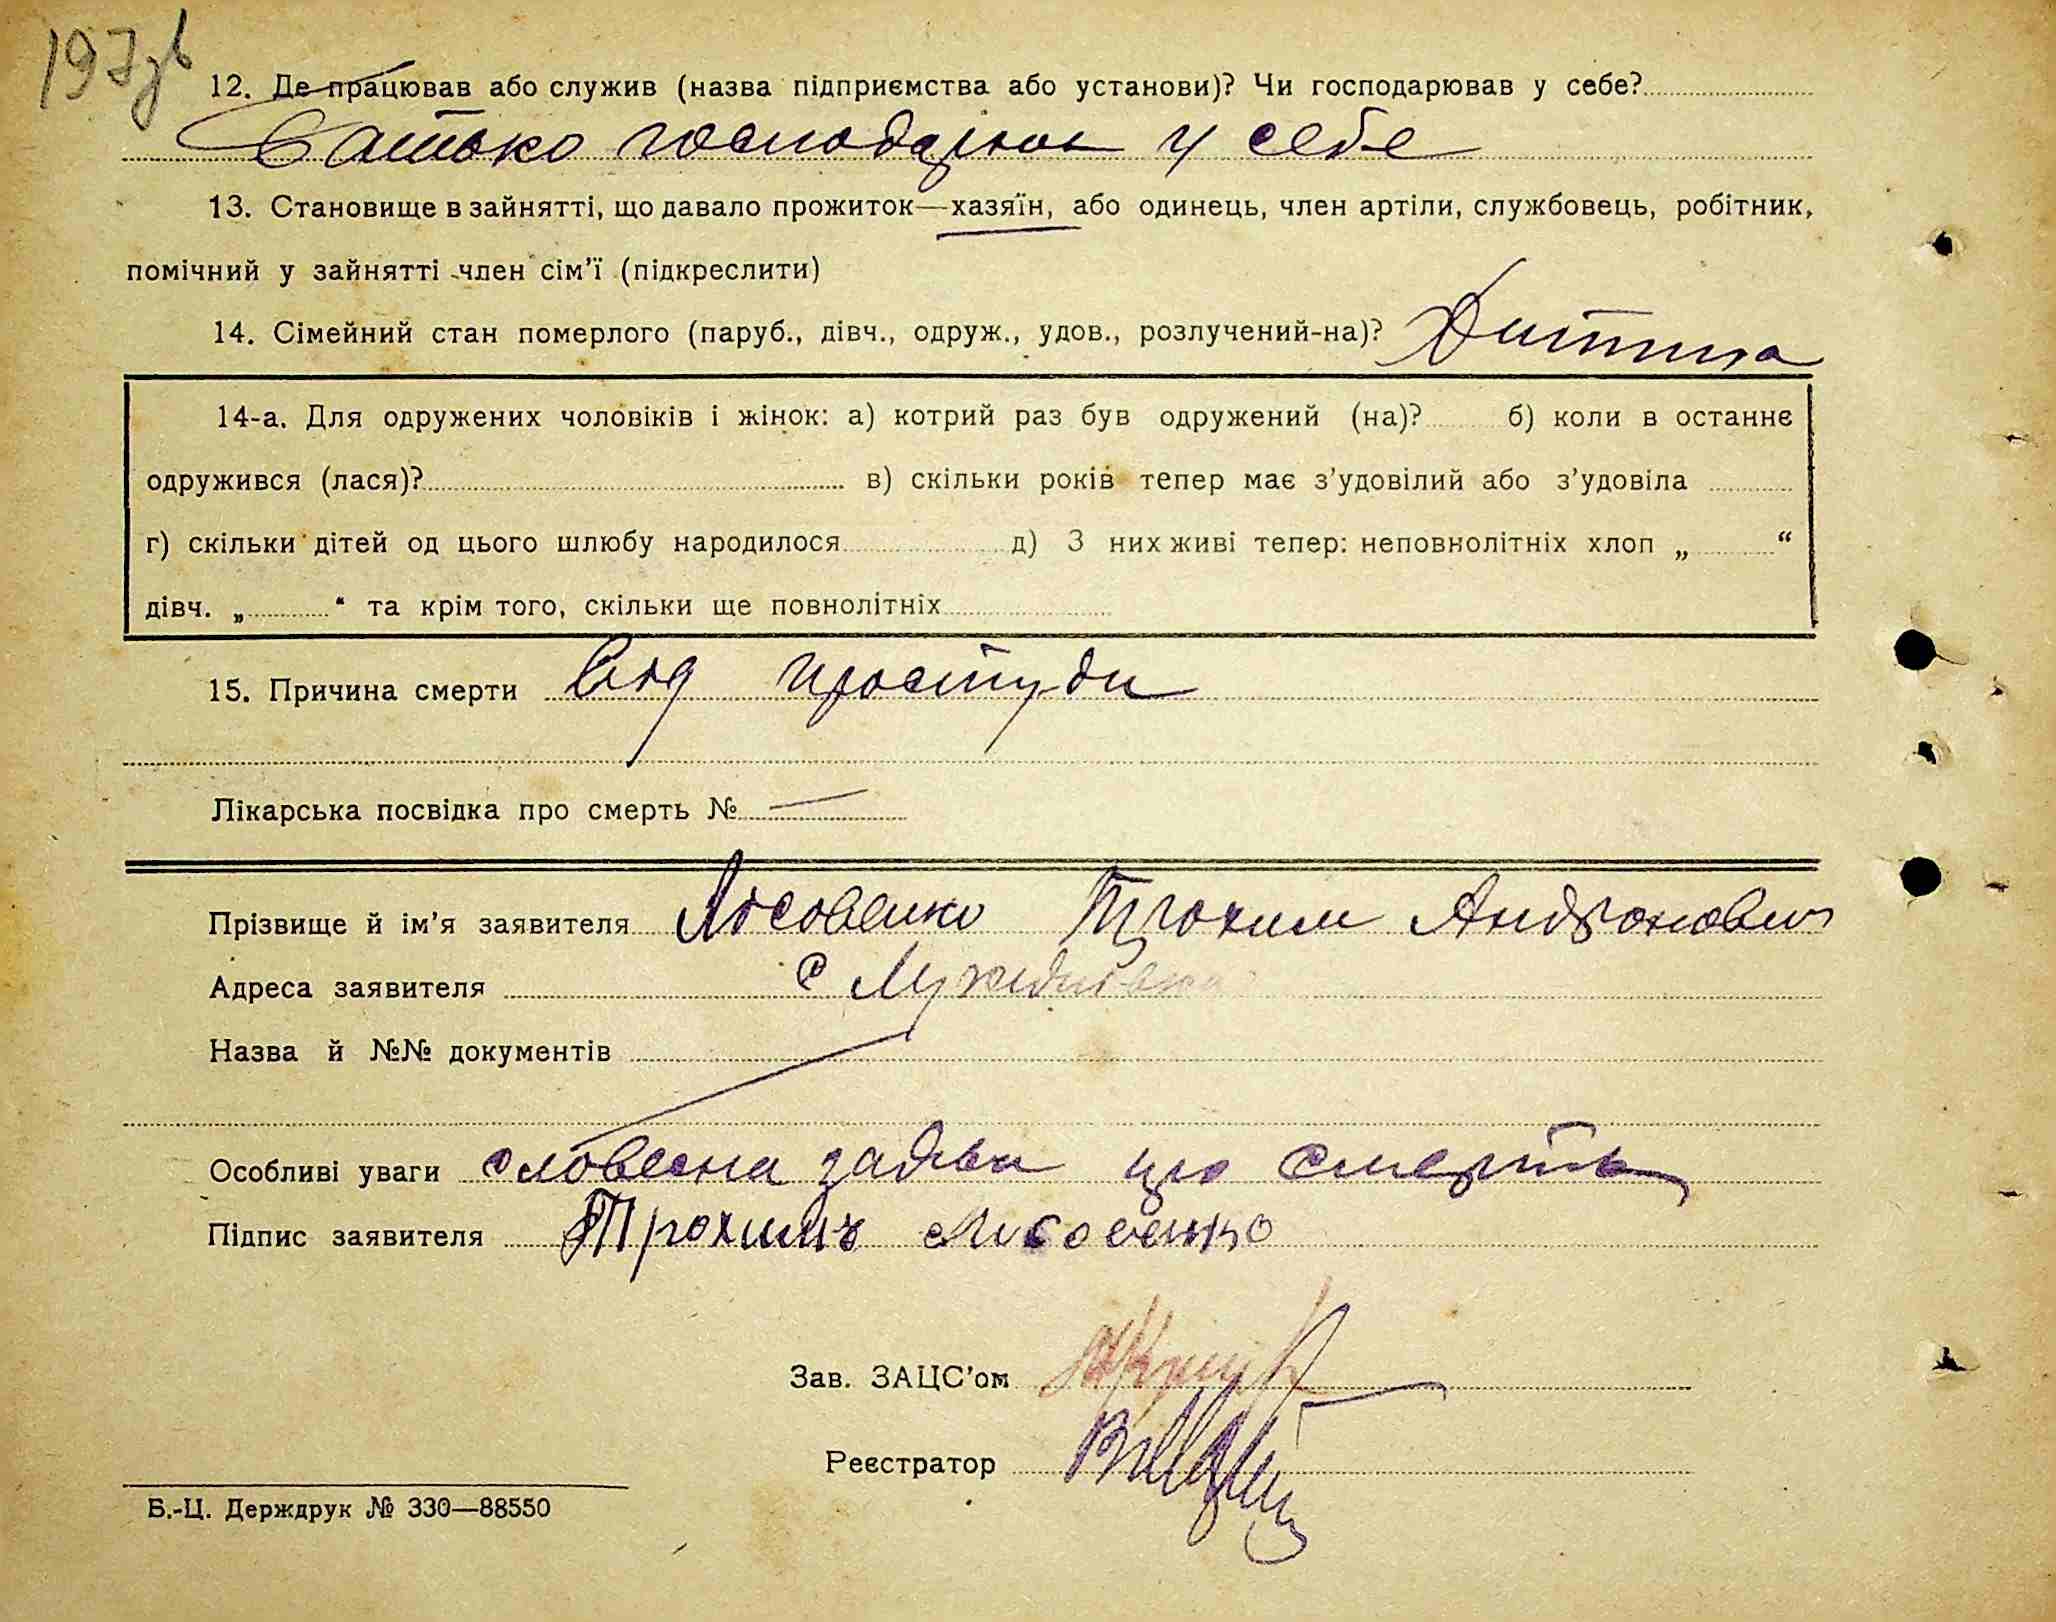 197зв
12. Де працював або служив (назва підприємства або установи)? Чи господарював у себе?
Батько господарює у себе
13. Становище в зайнятті, що давало прожиток—хазяїн, або одинець, член артіли, службовець, робітник,
помічний у зайнятті член сім'ї (підкреслити)
14. Сімейний стан померлого (паруб., дівч., одруж., удов., розлучений-на)? Дитина
14-а. Для одружених чоловіків і жінок: а) котрий раз був одружений (на)? б) коли в останнє
одружився (лася)? в) скільки років тепер має з'удовілий або з'удовіла
г) скільки дітей од цього шлюбу народилося д) З них живі тепер: неповнолітніх хлоп „ “
дівч. „ “ та крім того, скільки ще повнолітніх
15. Причина смерти Від простуди
Лікарська посвідка про смерть № —
Прізвище й ім'я заявителя Лісовенко Трохим Андронович
Адреса заявителя с
Назва й №№ документів
Особливі уваги словесна заява про смерть
Підпис заявителя Трохимъ Лисовенко
Зав. ЗАЦС'ом
Реєстратор
Б.-Ц. Держдрук № 330—88550